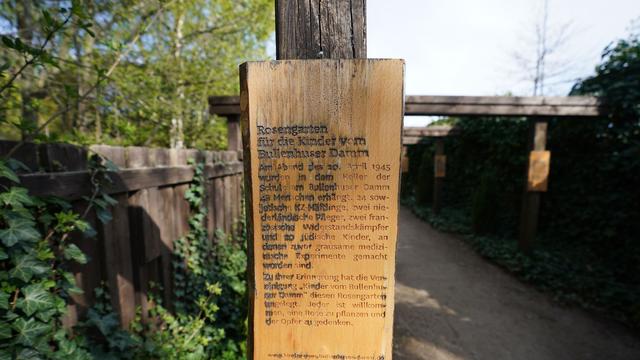 Rosengarten
für die Kinder vom
Bullenhuser Damm
Am Abend des 20. April 1945
wurden in dem Keller der
Schule am Bullenhuser Damm
48 Menschen erhängt: 24 sow-
jetische KZ-Häftlinge, zwei nie-
derländische Pfleger, zwei fran-
zösische Widerstandskämpfer
und 20 jüdische Kinder, an
denen zuvor grausame medizi-
nische Experimente gemacht
worden sind.
Zu ihrer Erinnerung hat die Ver-
einigung „Kinder vom Bullenhu-
ser Damm“ diesen Rosengarten
angelegt. Jeder ist willkom-
men, eine Rose zu pflanzen und
der Opfer zu gedenken.